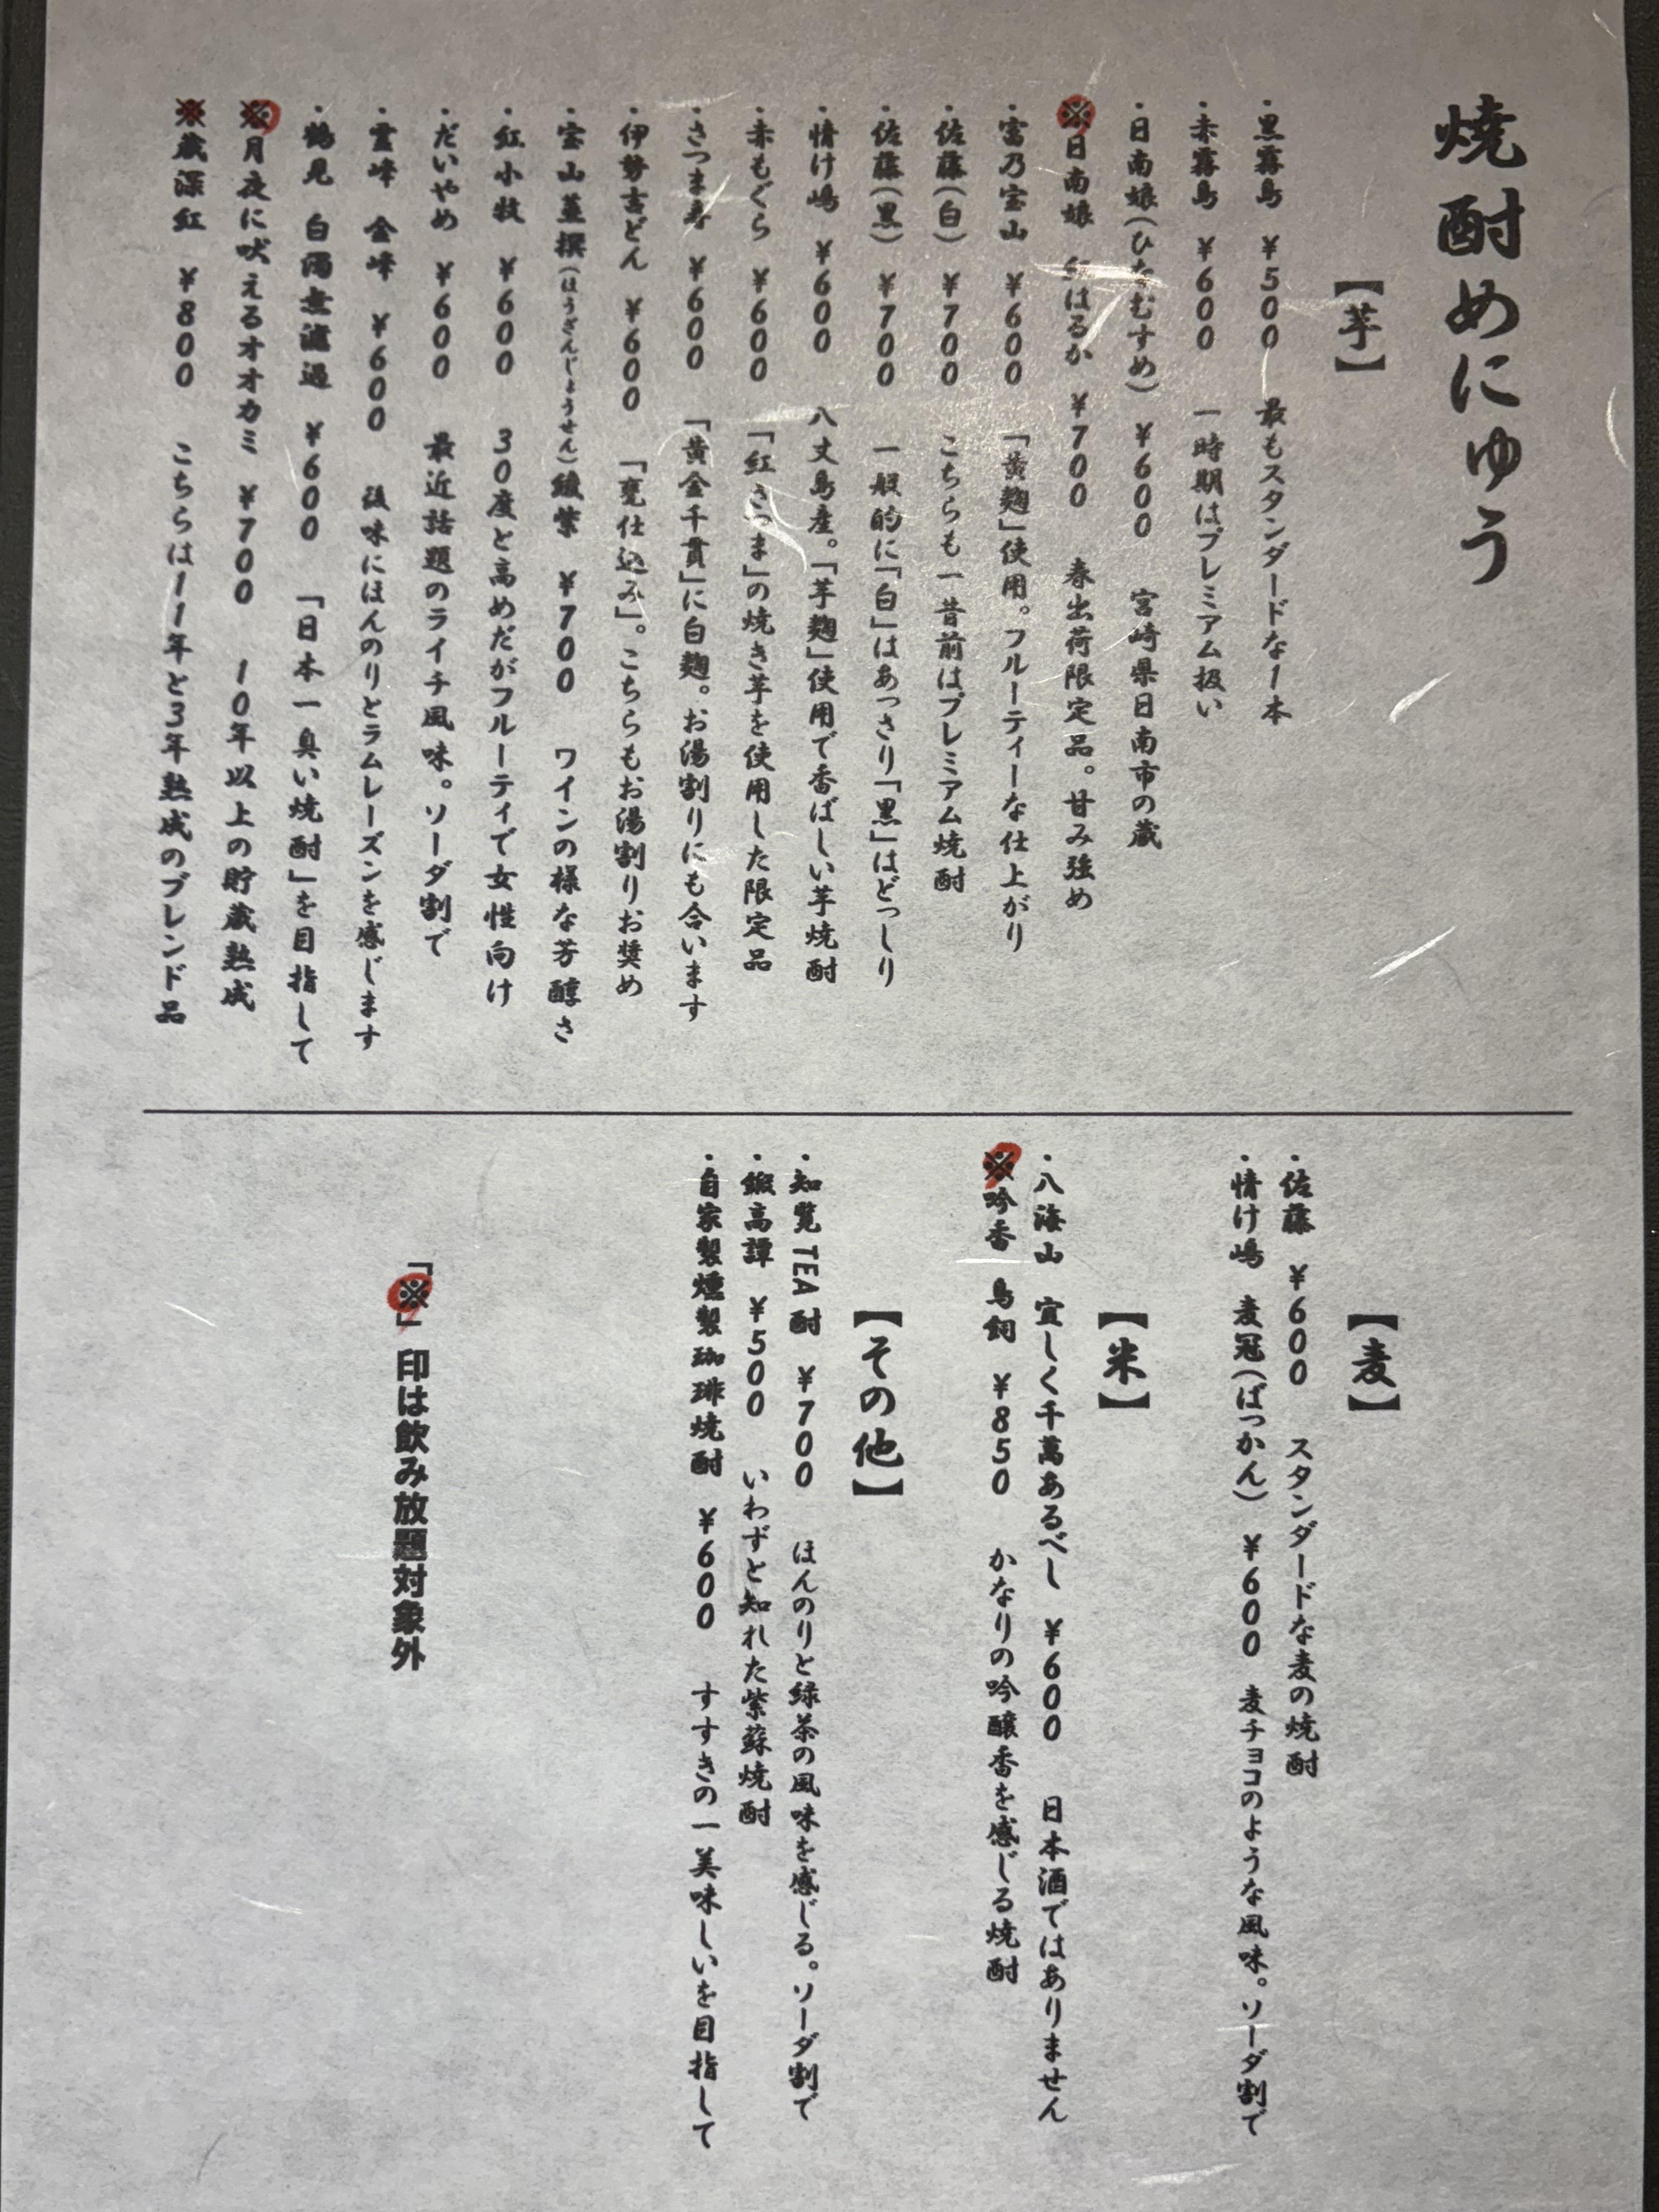 焼酎めにゅう
【芋】
・黒霧島 ¥500 最もスタンダードな1本
・赤霧島 ¥600 一時期はプレミアム扱い
・日南娘(ひなむすめ) ¥600 宮崎県日南市の蔵
※日南娘 紅はるか ¥700 春出荷限定品。甘み強め
・富乃宝山 ¥600 「黄麹」使用。フルーティーな仕上がり
・佐藤(白) ¥700 こちらも一昔前はプレミアム焼酎
・佐藤(黒) ¥700 一般的に「白」はあっさり「黒」はどっしり
・情け嶋 ¥600 八丈島産。「芋麹」使用で香ばしい芋焼酎
・赤もぐら ¥600 「紅さつま」の焼き芋を使用した限定品
・さつま寿 ¥600 「黄金千貫」に白麹。お湯割りにも合います
・伊勢吉どん ¥600 「甕仕込み」。こちらもお湯割りお奨め
・宝山蒸撰(ほうざんじょうせん)綾紫 ¥700 ワインの様な芳醇さ
・紅小牧 ¥600 30度と高めだがフルーティで女性向け
・だいやめ ¥600 最近話題のライチ風味。ソーダ割で
・霊峰 金峰 ¥600 後味にほんのりとラムレーズンを感じます
・鶴見 白濁無濾過 ¥600 「日本一臭い焼酎」を目指して
※月夜に吠えるオオカミ ¥700 10年以上の貯蔵熟成
※蔵深紅 ¥800 こちらは11年と3年熟成のブレンド品
【麦】
・佐藤 ¥600 スタンダードな麦の焼酎
・情け嶋 麦冠(ばっかん) ¥600 麦チョコのような風味。ソーダ割で
【米】
・八海山 宜しく千萬あるべし ¥600 日本酒ではありません
※吟香 鳥飼 ¥850 かなりの吟醸香を感じる焼酎
【その他】
・知覧TEA酎 ¥700 ほんのりと緑茶の風味を感じる。ソーダ割で
・鍛高譚 ¥500 いわずと知れた紫蘇焼酎
・自家製燻製珈琲焼酎 ¥600 すすきの一美味しいを目指して
「※」印は飲み放題対象外